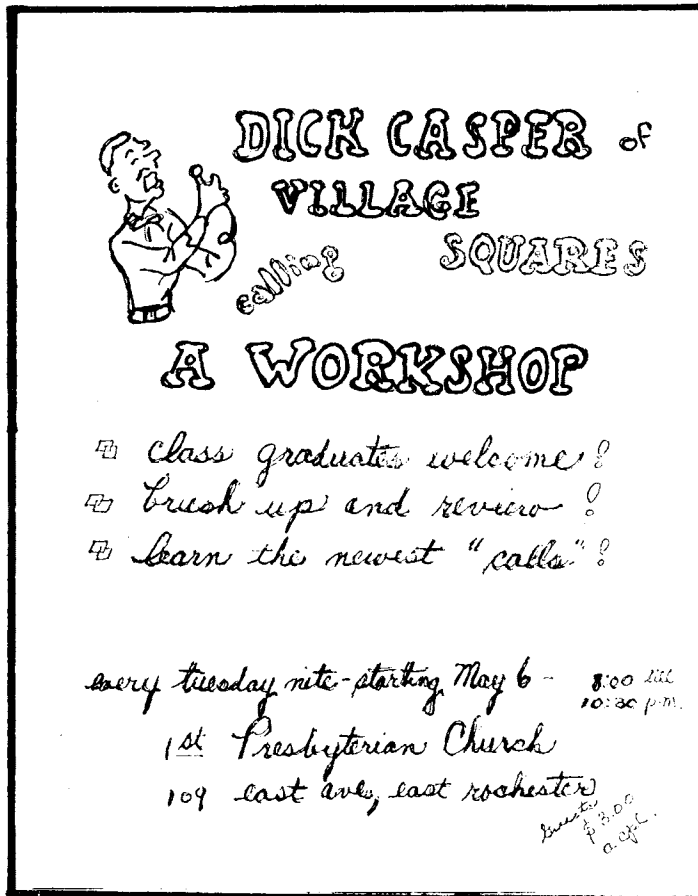 DICK CASPER of
VILLAGE
SQUARES
calling
A WORKSHOP
class graduates welcome!
brush up and review!
learn the newest "calls"!
every tuesday nite - starting May 6 - 8:00 till
10:30 p.m.
1st Presbyterian Church
109 east ave, east rochester
Guests
$3.00
a cpl.